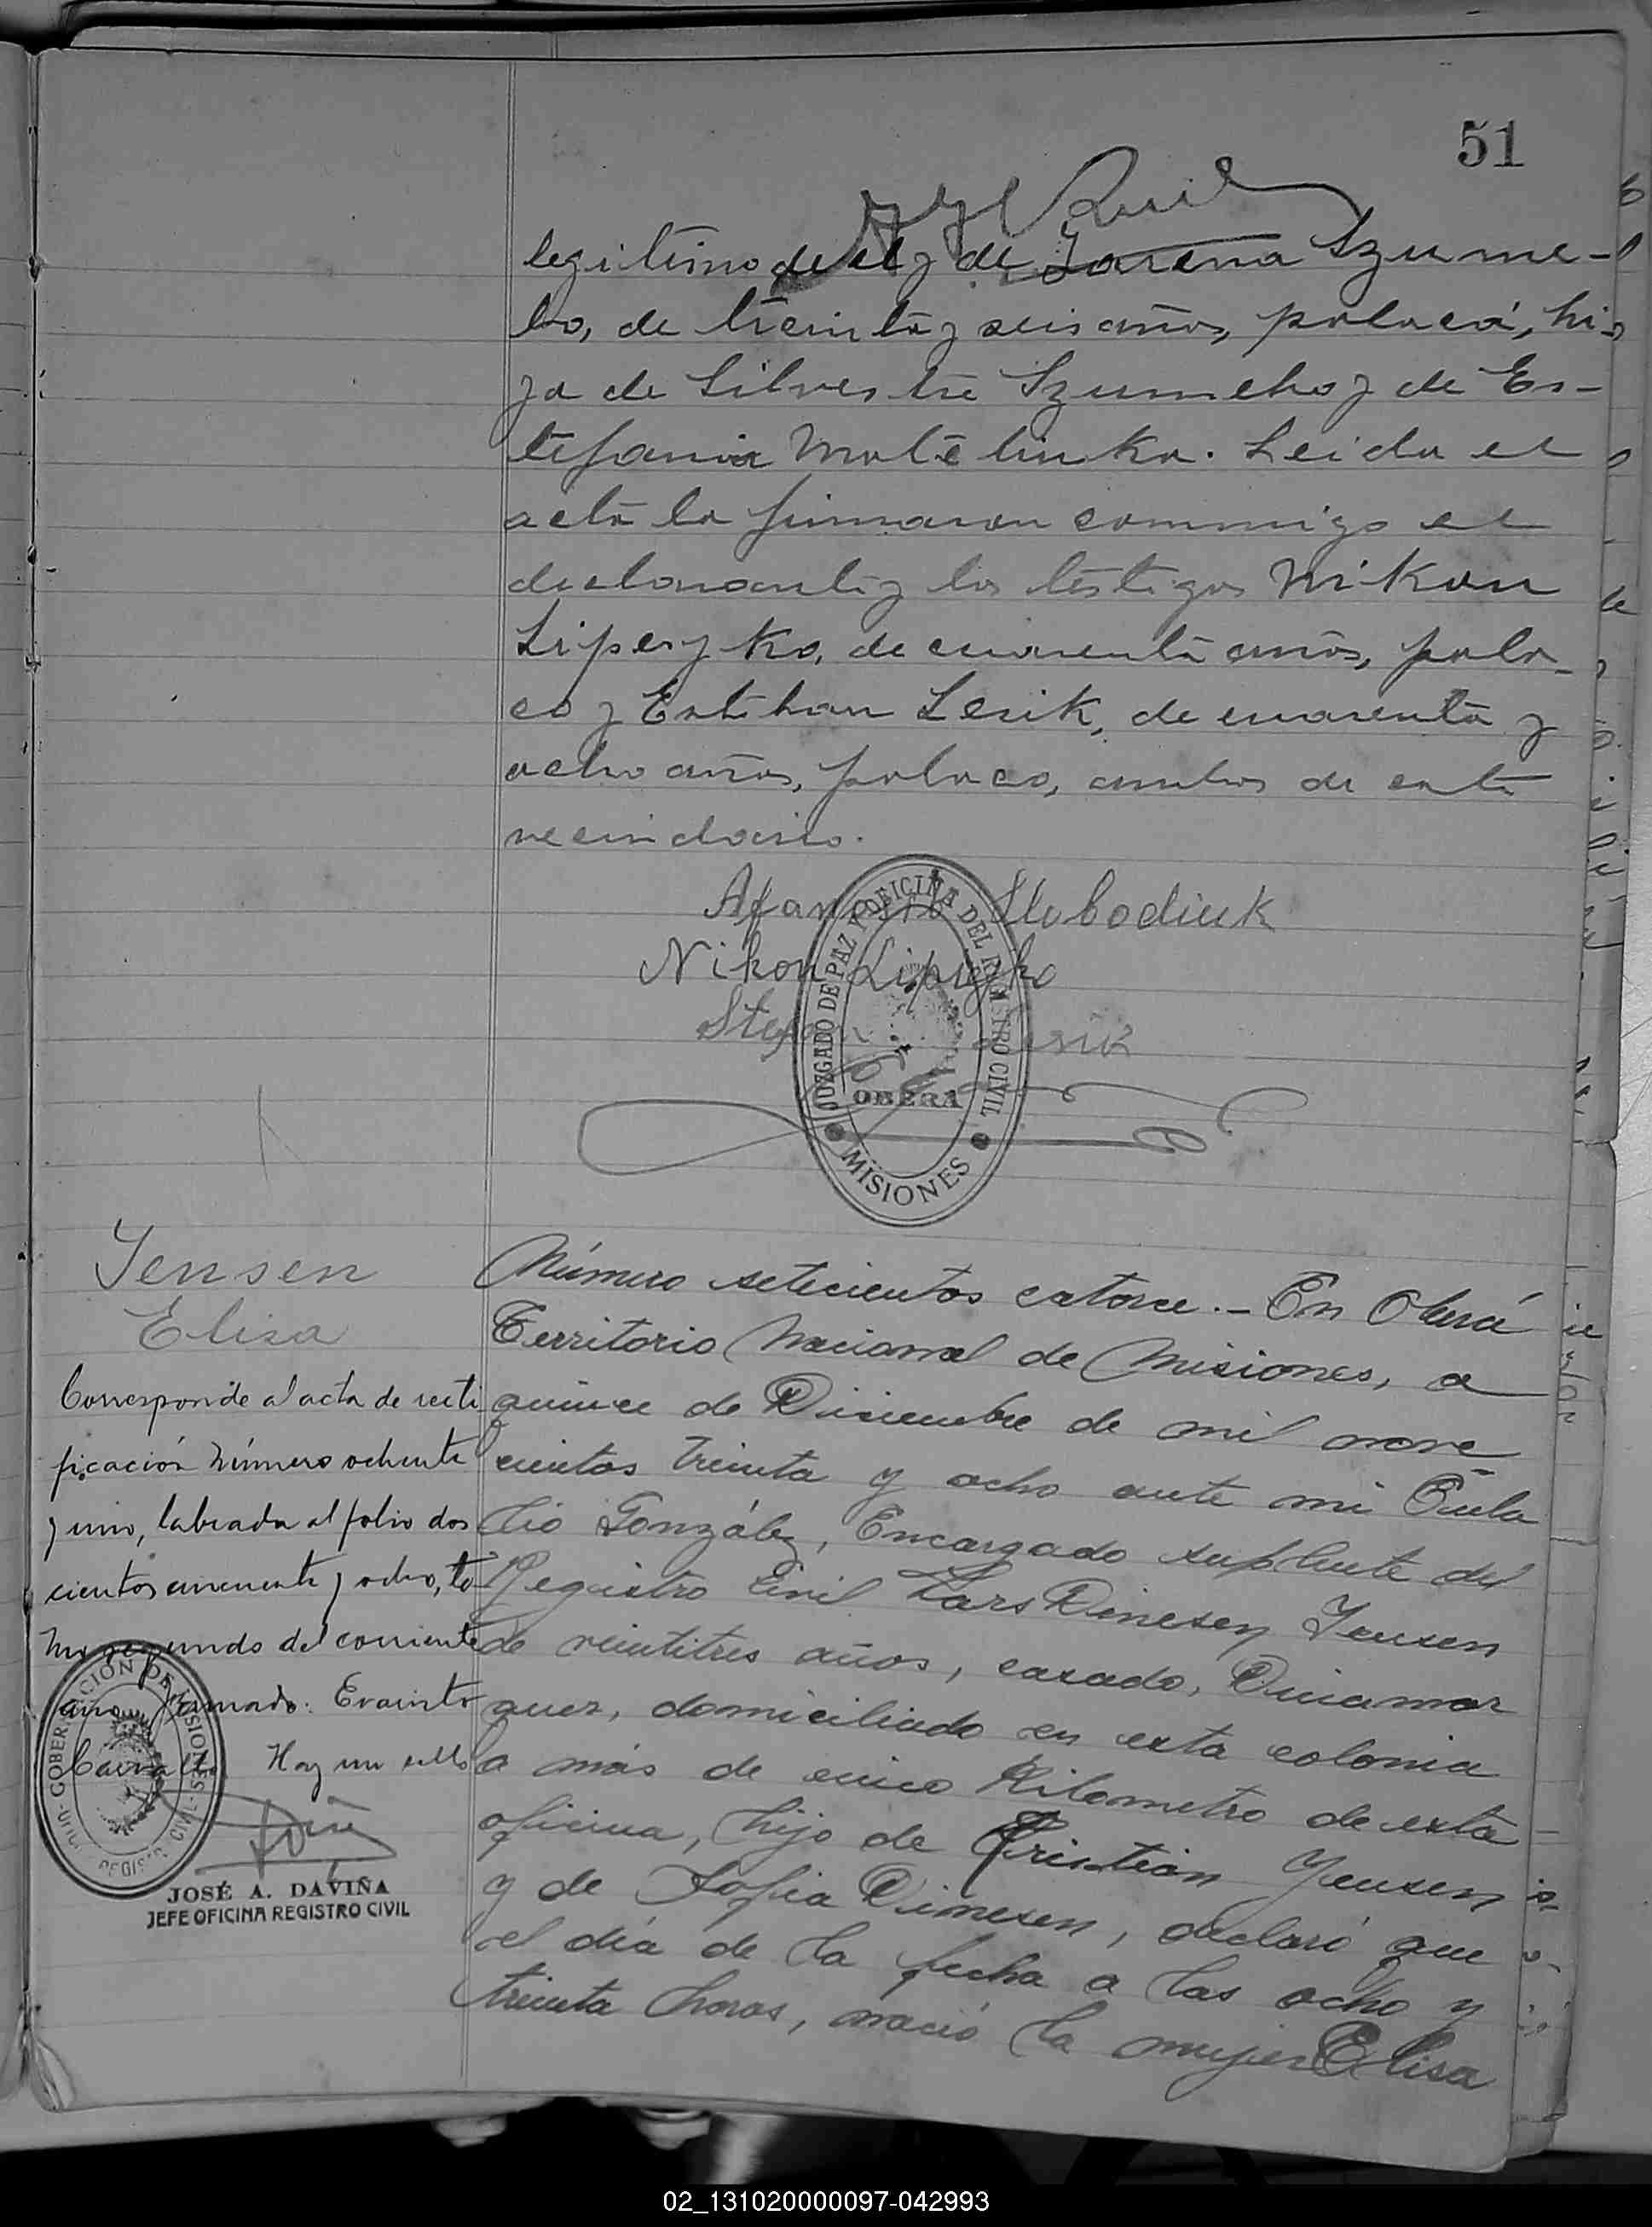 51
legitimo de el y de Szume-
lo, de treinta y seis años, polaca, hi-
ja de Silvestre Szumelo y de Es-
tefania Matelinka. Leida el
acta la firmaron conmigo el
declarante y los testigos Nikon
Lipezyko, de cuarenta años, pola-
co y Esteban Lesik, de cuarenta y
ocho años, polaco, ambos de este
vecindario.
Slobodiuk
Nikon
Stefan Lesik
JUZGADO DE PAZ Y OFICINA DEL REGISTRO CIVIL
OBERA
MISIONES
Yensen
Elisa
Corresponde al acta de recti
ficación número ochenta
y uno, labrada al folio dos
cientos cincuenta y ocho, to
mo segundo del corriente
año firmado. Evaristo
Hay un sello
GOBERNACIÓN DE MISIONES
OFICINA REGISTRO CIVIL
JOSÉ A. DAVIÑA
JEFE OFICINA REGISTRO CIVIL
Número setecientos catorce.- En Oberá
Territorio Nacional de Misiones, a
quince de Diciembre de mil nove
cientos treinta y ocho ante mi Eula
lio González, Encargado suplente del
Registro Civil Lars Dinesen Yensen
de veintitres años, casado, Dinamar
ques, domiciliado en esta colonia
a más de cinco Kilometro de esta
oficina, hijo de Cristian Yensen
y de Sofia Dinesen, declaró que
el día de la fecha a las ocho y
treinta horas, nació la mujer Elisa
02_131020000097-042993